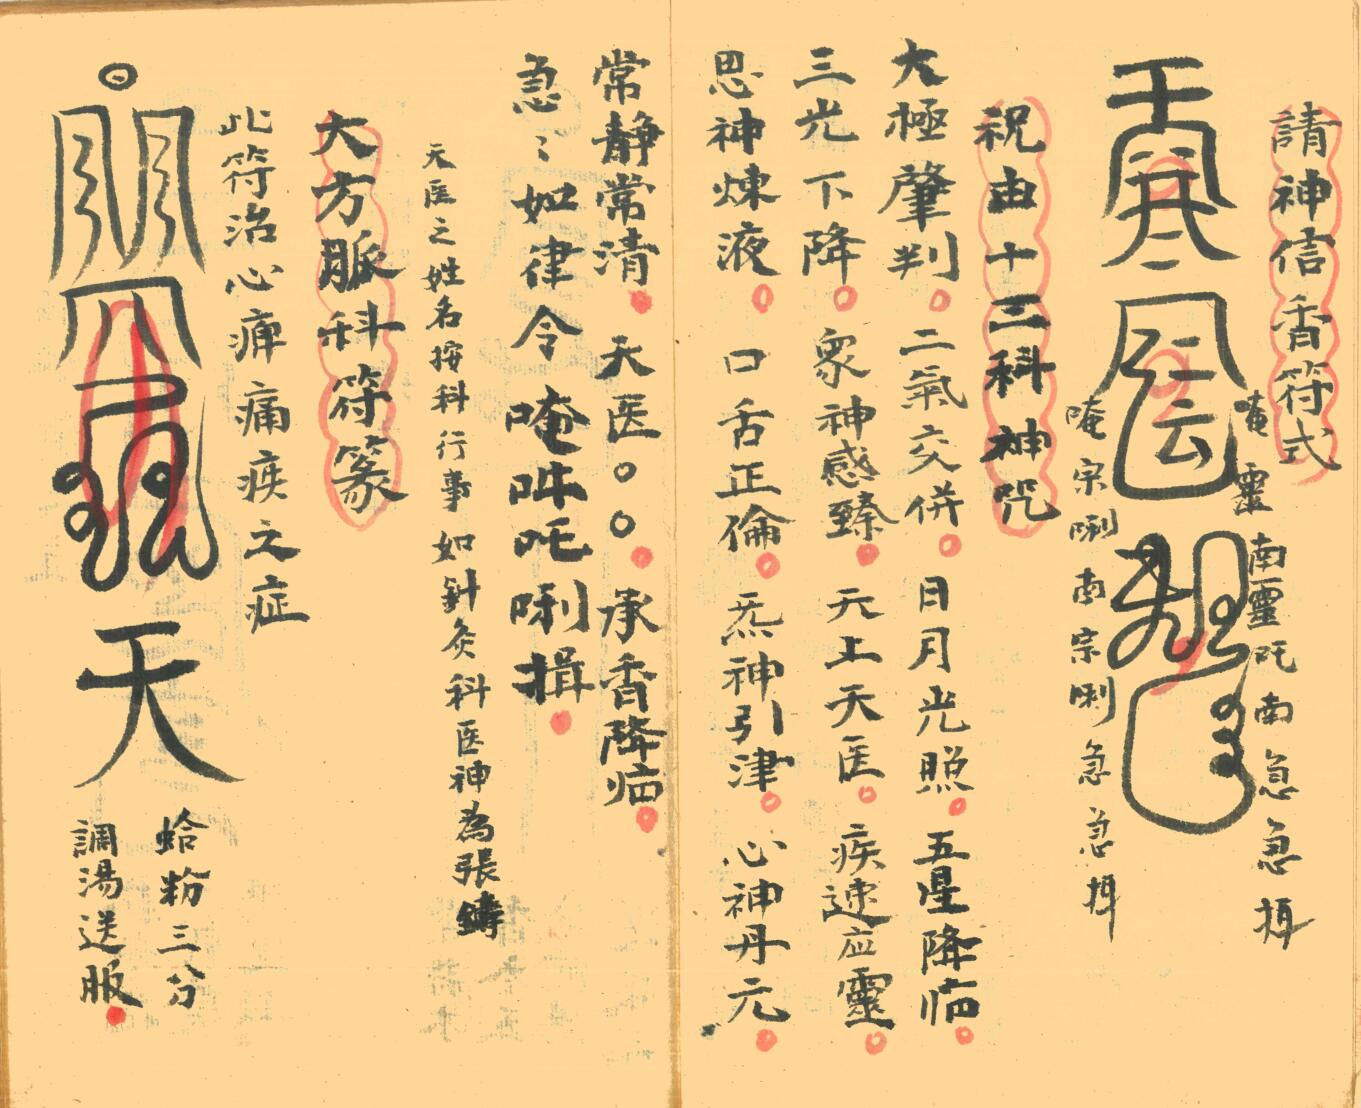 請神信香符式
唵靈南靈吒南急急
唵宗唎南宗唎急急
祝由十三科神咒
大極肇判 二氣交併 日月光照 五星降临
三光下降 眾神感臻 天上天医 疾速应靈
思神煉液 口舌正倫 炁神引津 心神丹元
常静常清 天医○○ 承香降临
急〻如律令唵吽吒唎揖
元医之姓名按科行事如針灸科医神為張鑄
大方脈科符篆
此符治心痺痛疾之症
天
蛤粉三分
調湯送服